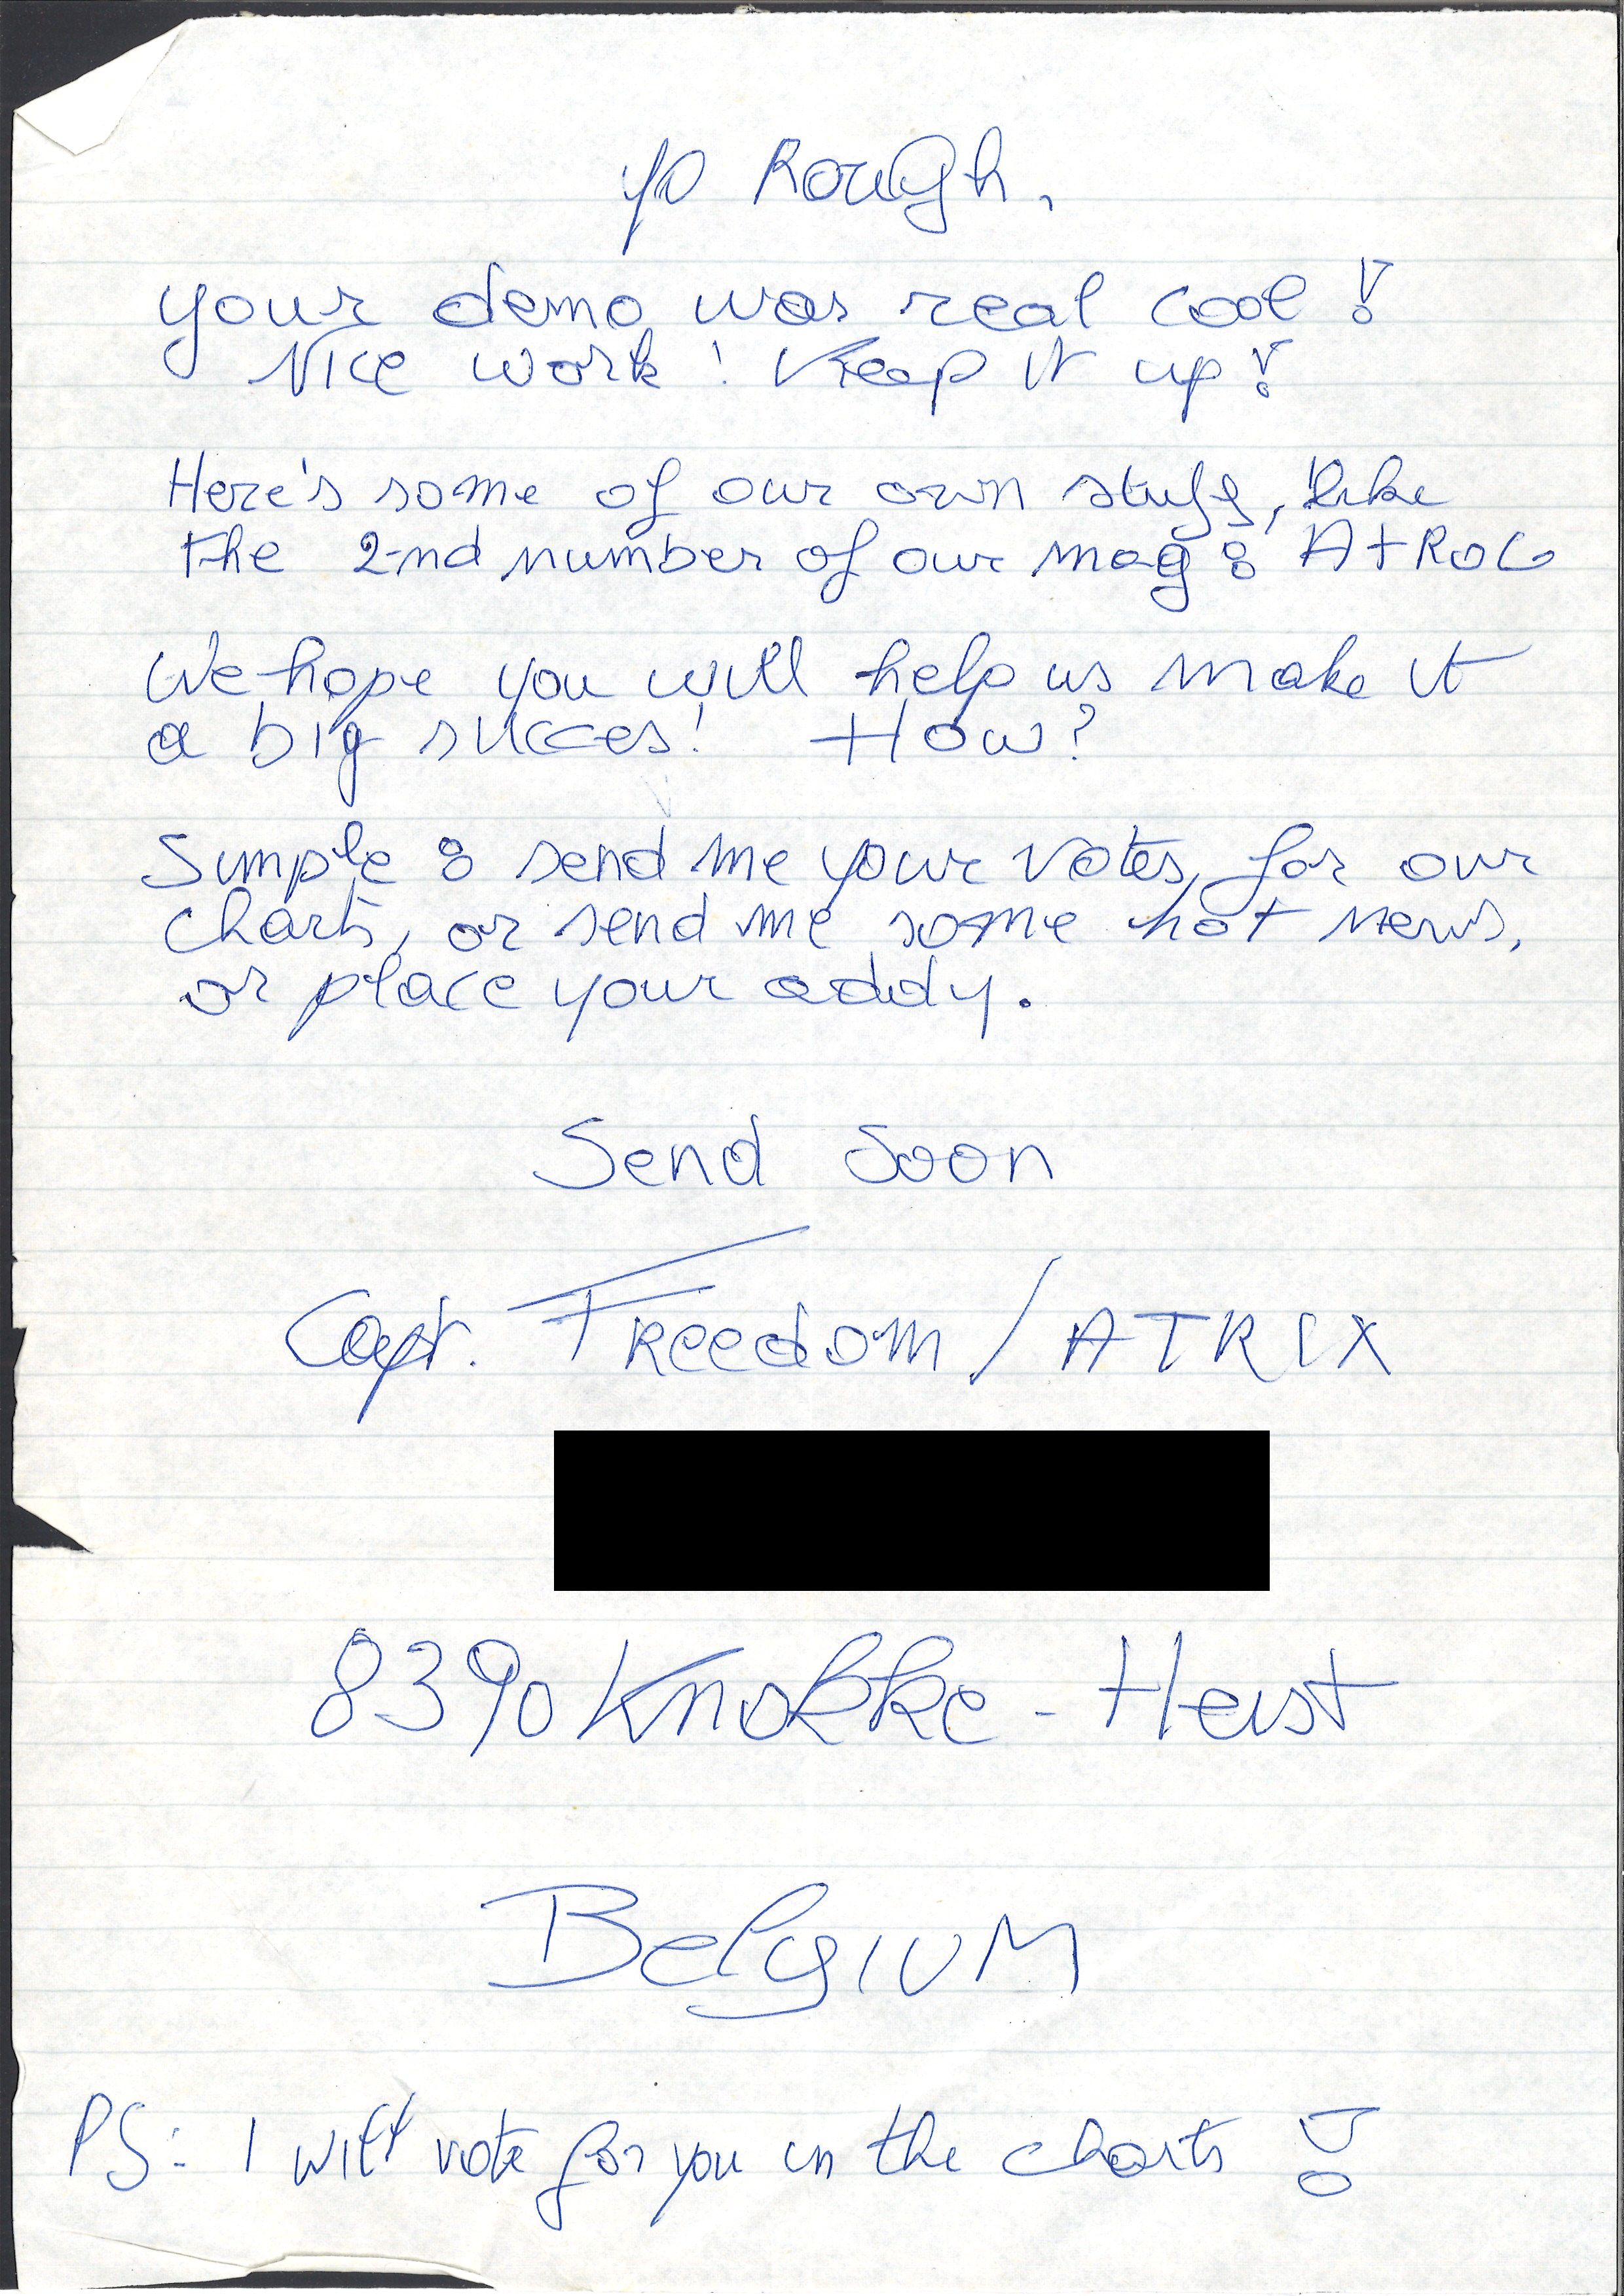 Yo Rough,
your demo was real cool!
Nice work! Keep it up!
Here's some of our own stuff, like
the 2-nd number of our mag: Atroc
We hope you will help us make it
a big succes! How?
Simple: send me your votes, for our
charts, or send me some hot news,
or place your addy.
Send Soon
Capt. Freedom / ATRIX
8390 Knokke - Heist
Belgium
PS: I will vote for you in the charts!